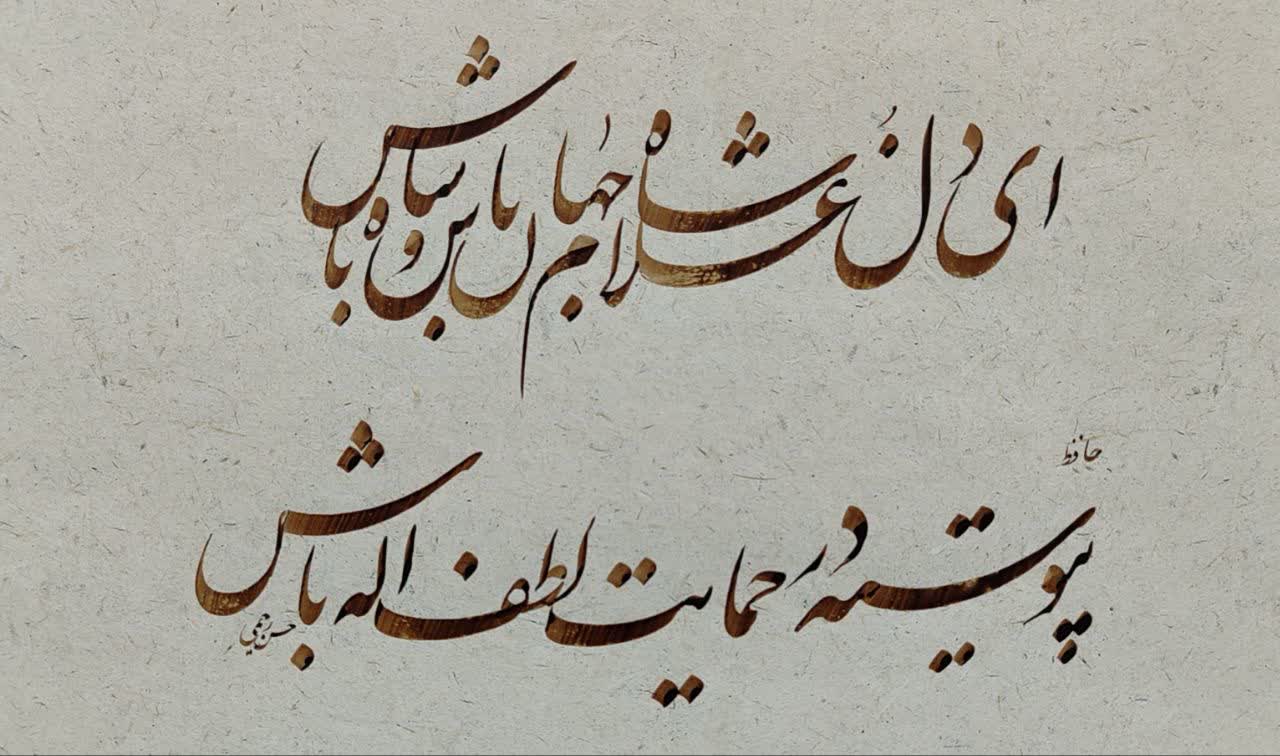 ای دل غلام شاه جهان باش و شاه باش
حافظ
پیوسته در حمایت لطف اله باش